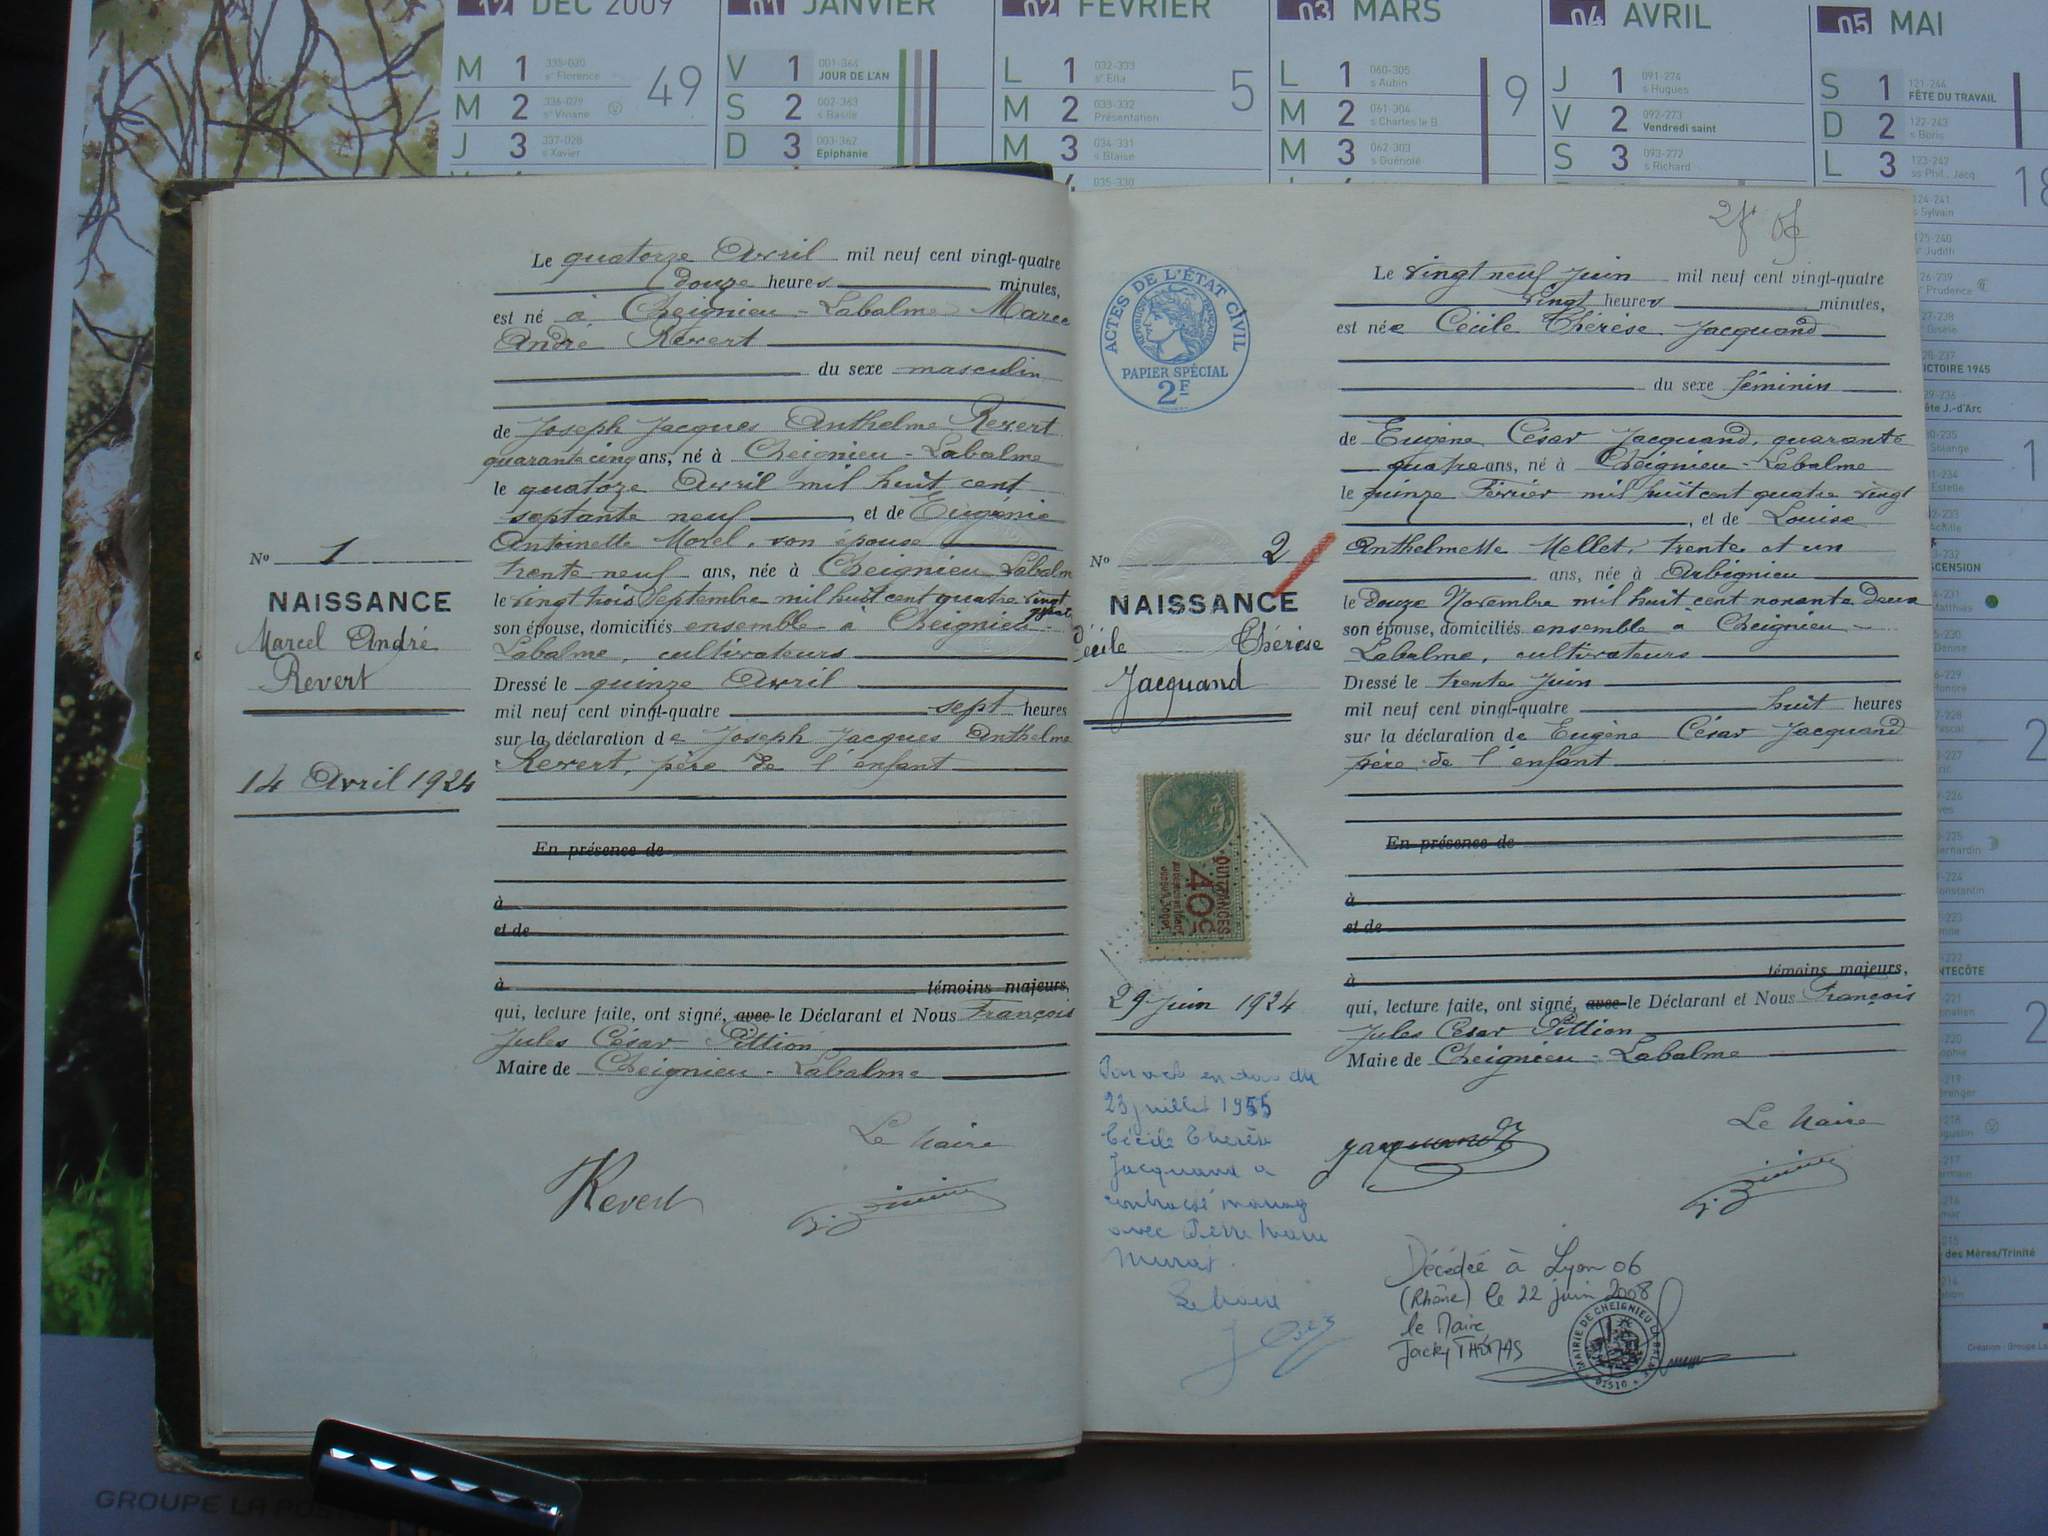 12 DEC 2009
M 1 335-030 49
sᵉ Florence
M 2 336-029
sᵉ Viviane
J 3 337-028
s Xavier
01 JANVIER
V 1 001-364
JOUR DE L'AN
S 2 002-363
s Basile
D 3 003-362
Epiphanie
02 FÉVRIER
L 1 032-333 5
sᵉ Ella
M 2 033-332
Présentation
M 3 034-331
s Blaise
035-330
03 MARS
L 1 060-305 9
s Aubin
M 2 061-304
s Charles le B.
M 3 062-303
s Guénolé
04 AVRIL
J 1 091-274
s Hugues
V 2 092-273
Vendredi saint
S 3 093-272
s Richard
05 MAI
S 1 121-244
FÊTE DU TRAVAIL
D 2 122-243
s Boris
L 3 123-242 18
ss Phil., Jacq.
Le quatorze Avril mil neuf cent vingt-quatre
douze heures minutes,
est né à Cheignieu-Labalme Marcel
André Revert
du sexe masculin
de Joseph Jacques Anthelme Revert
quarante cinq ans, né à Cheignieu-Labalme
le quatoze Avril mil huit cent
septante neuf, et de Eugénie
Antoinette Morel, son épouse
trente neuf ans, née à Cheignieu Labalm
le vingt trois Septembre mil huit cent quatre vingt
quatre
son épouse, domiciliés ensemble à Cheignieu-
Labalme, cultivateurs
Dressé le quinze Avril
mil neuf cent vingt-quatre sept heures
sur la déclaration de Joseph Jacques Anthelme
Revert, père de l'enfant
En présence de
à
et de
à témoins majeurs,
qui, lecture faite, ont signé, avec le Déclarant et Nous François
Jules César Pittion
Maire de Cheignieu-Labalme
Le Maire
Revert
Nº 1
NAISSANCE
Marcel André
Revert
14 Avril 1924
ACTES DE L'ÉTAT CIVIL
RÉPUBLIQUE FRANÇAISE
PAPIER SPÉCIAL
2F
Nº 2
NAISSANCE
Cécile Thérèse
Jacquand
QUITTANCES
40c
29 Juin 1924
23 juillet 1955
Cécile Thérèse
Jacquand a
contracté mariag
avec Pierre
Murat.
Le Maire
Le vingt neuf Juin mil neuf cent vingt-quatre
vingt heures minutes,
est née Cécile Thérèse Jacquand
du sexe féminin
de Eugène César Jacquand, quarante
quatre ans, né à Cheignieu-Labalme
le quinze Février mil huit cent quatre vingt
, et de Louise
Anthelmette Mellet, trente et un
ans, née à Arbignieu
le douze Novembre mil huit cent nonante deux
son épouse, domiciliés ensemble à Cheignieu-
Labalme, cultivateurs
Dressé le trente Juin
mil neuf cent vingt-quatre huit heures
sur la déclaration de Eugène César Jacquand
père de l'enfant
En présence de
à
et de
à témoins majeurs,
qui, lecture faite, ont signé, avec le Déclarant et Nous François
Jules César Pittion
Maire de Cheignieu-Labalme
Le Maire
Jacquand
Décédée à Lyon 06
(Rhône) le 22 juin 2008
le Maire
Jacky THOMAS
MAIRIE DE CHEIGNIEU LA BALME
01510
CTOIRE 1945
ête J.-d'Arc
SCENSION
NTECÔTE
des Mères/Trinité
Création : Groupe La
GROUPE LA POS